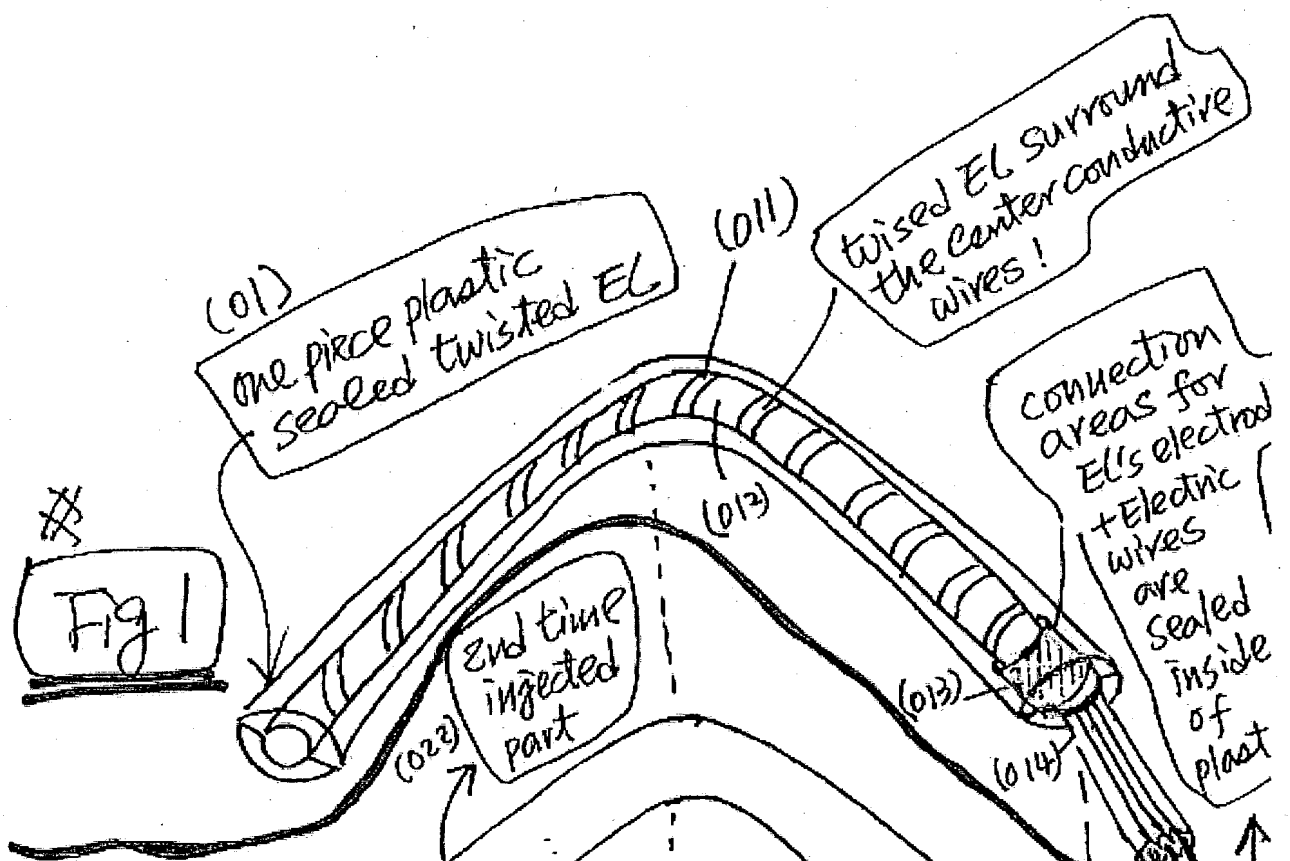 (01)
one piece plastic
sealed twisted EL
(011)
twised EL surround
the center conductive
wires!
connection
areas for
EL's electrod
+Electric
wires
are
sealed
inside
of
plast
(012)
Fig 1
2nd time
injected
part
(022)
(013)
(014)